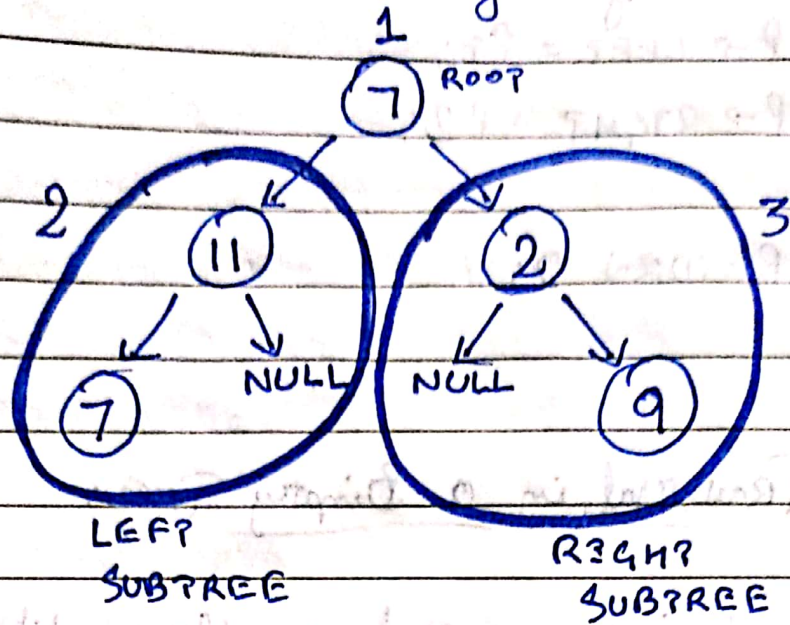 1
7 ROOT
2
11
2
3
7
NULL
NULL
9
LEFT
SUBTREE
RIGHT
SUBTREE